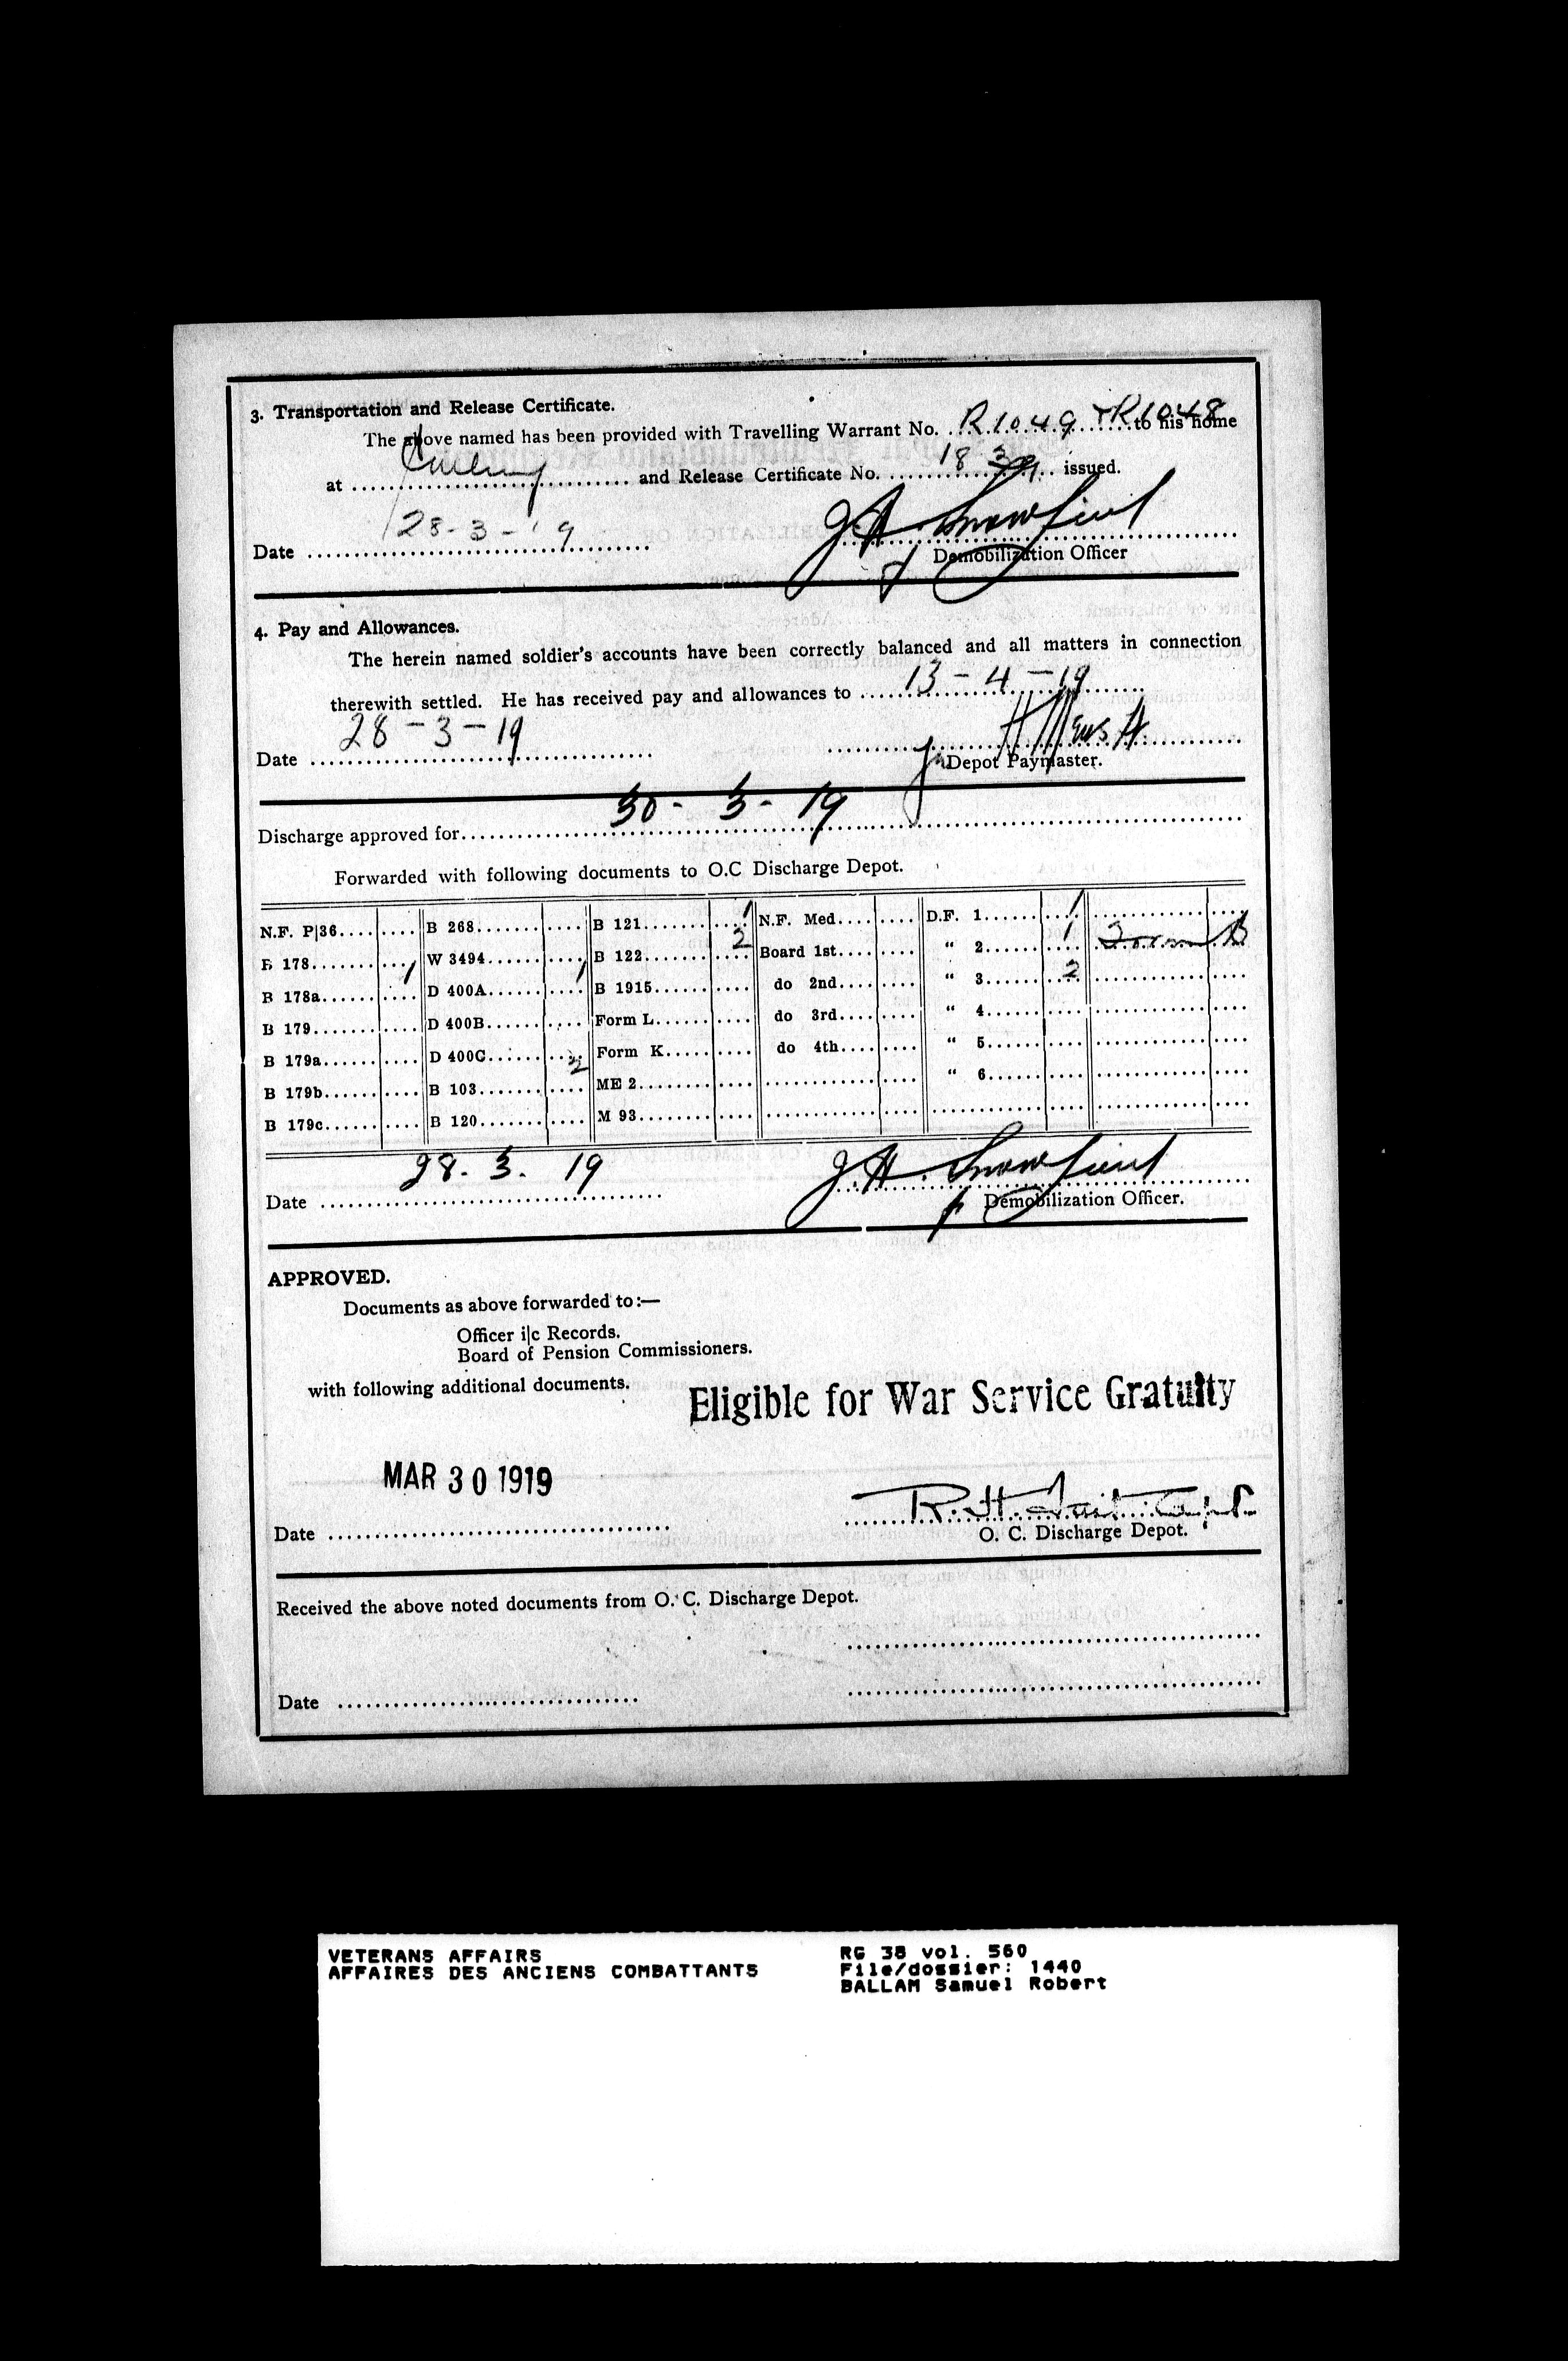 3. Transportation and Release Certificate.
The above named has been provided with Travelling Warrant No. R1049 + R1048 to his home
at .............................. and Release Certificate No. .................... issued.
Date 28-3-19
Demobilization Officer
4. Pay and Allowances.
The herein named soldier's accounts have been correctly balanced and all matters in connection
therewith settled. He has received pay and allowances to 13-4-19
Date 28-3-19
Depot Paymaster.
Discharge approved for 30-3-19
Forwarded with following documents to O.C Discharge Depot.
N.F. P|36 B 268 B 121 1 N.F. Med. D.F. 1 1
B 178 W 3494 B 122 2 Board 1st " 2 1 Form B
B 178a 1 D 400A 1 B 1915 do 2nd " 3 2
B 179 D 400B Form L do 3rd " 4
B 179a D 400C Form K do 4th " 5
B 179b B 103 2 ME 2 " 6
B 179c B 120 M 93
Date 28. 3. 19
Demobilization Officer.
APPROVED.
Documents as above forwarded to:—
Officer i|c Records.
Board of Pension Commissioners.
with following additional documents.
Eligible for War Service Gratuity
MAR 30 1919
Date
R. H. Tait Capt.
O. C. Discharge Depot.
Received the above noted documents from O. C. Discharge Depot.
Date
VETERANS AFFAIRS
AFFAIRES DES ANCIENS COMBATTANTS
RG 38 vol. 560
File/dossier: 1440
BALLAM Samuel Robert